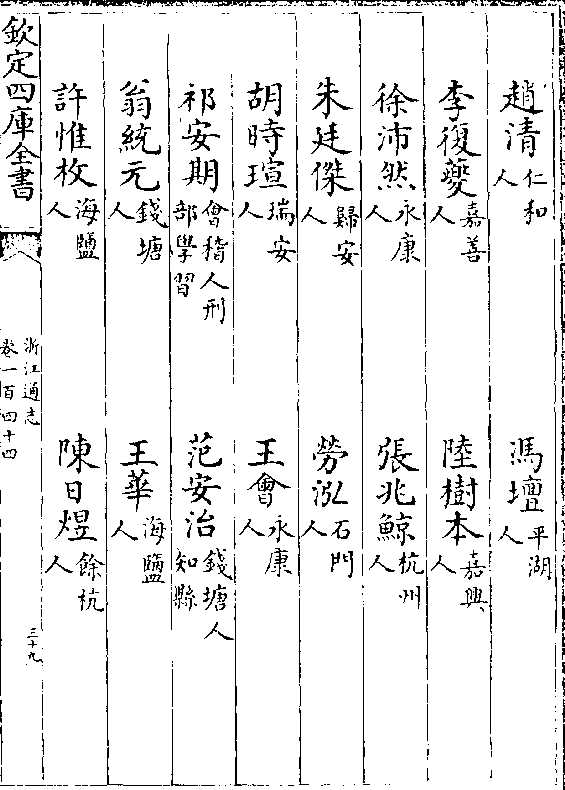 趙清仁和人 馮壇平湖人
李復夔嘉善人 陸樹本嘉興人
徐沛然永康人 張兆鯨杭州人
朱廷傑歸安人 勞泓石門人
胡時瑄瑞安人 王會永康人
祁安期會稽人刑部學習 范安治錢塘人知縣
翁統元錢塘人 王華海鹽人
許惟枚海鹽人 陳日煜餘杭人
欽定四庫全書
浙江通志
卷一百四十四
三十九